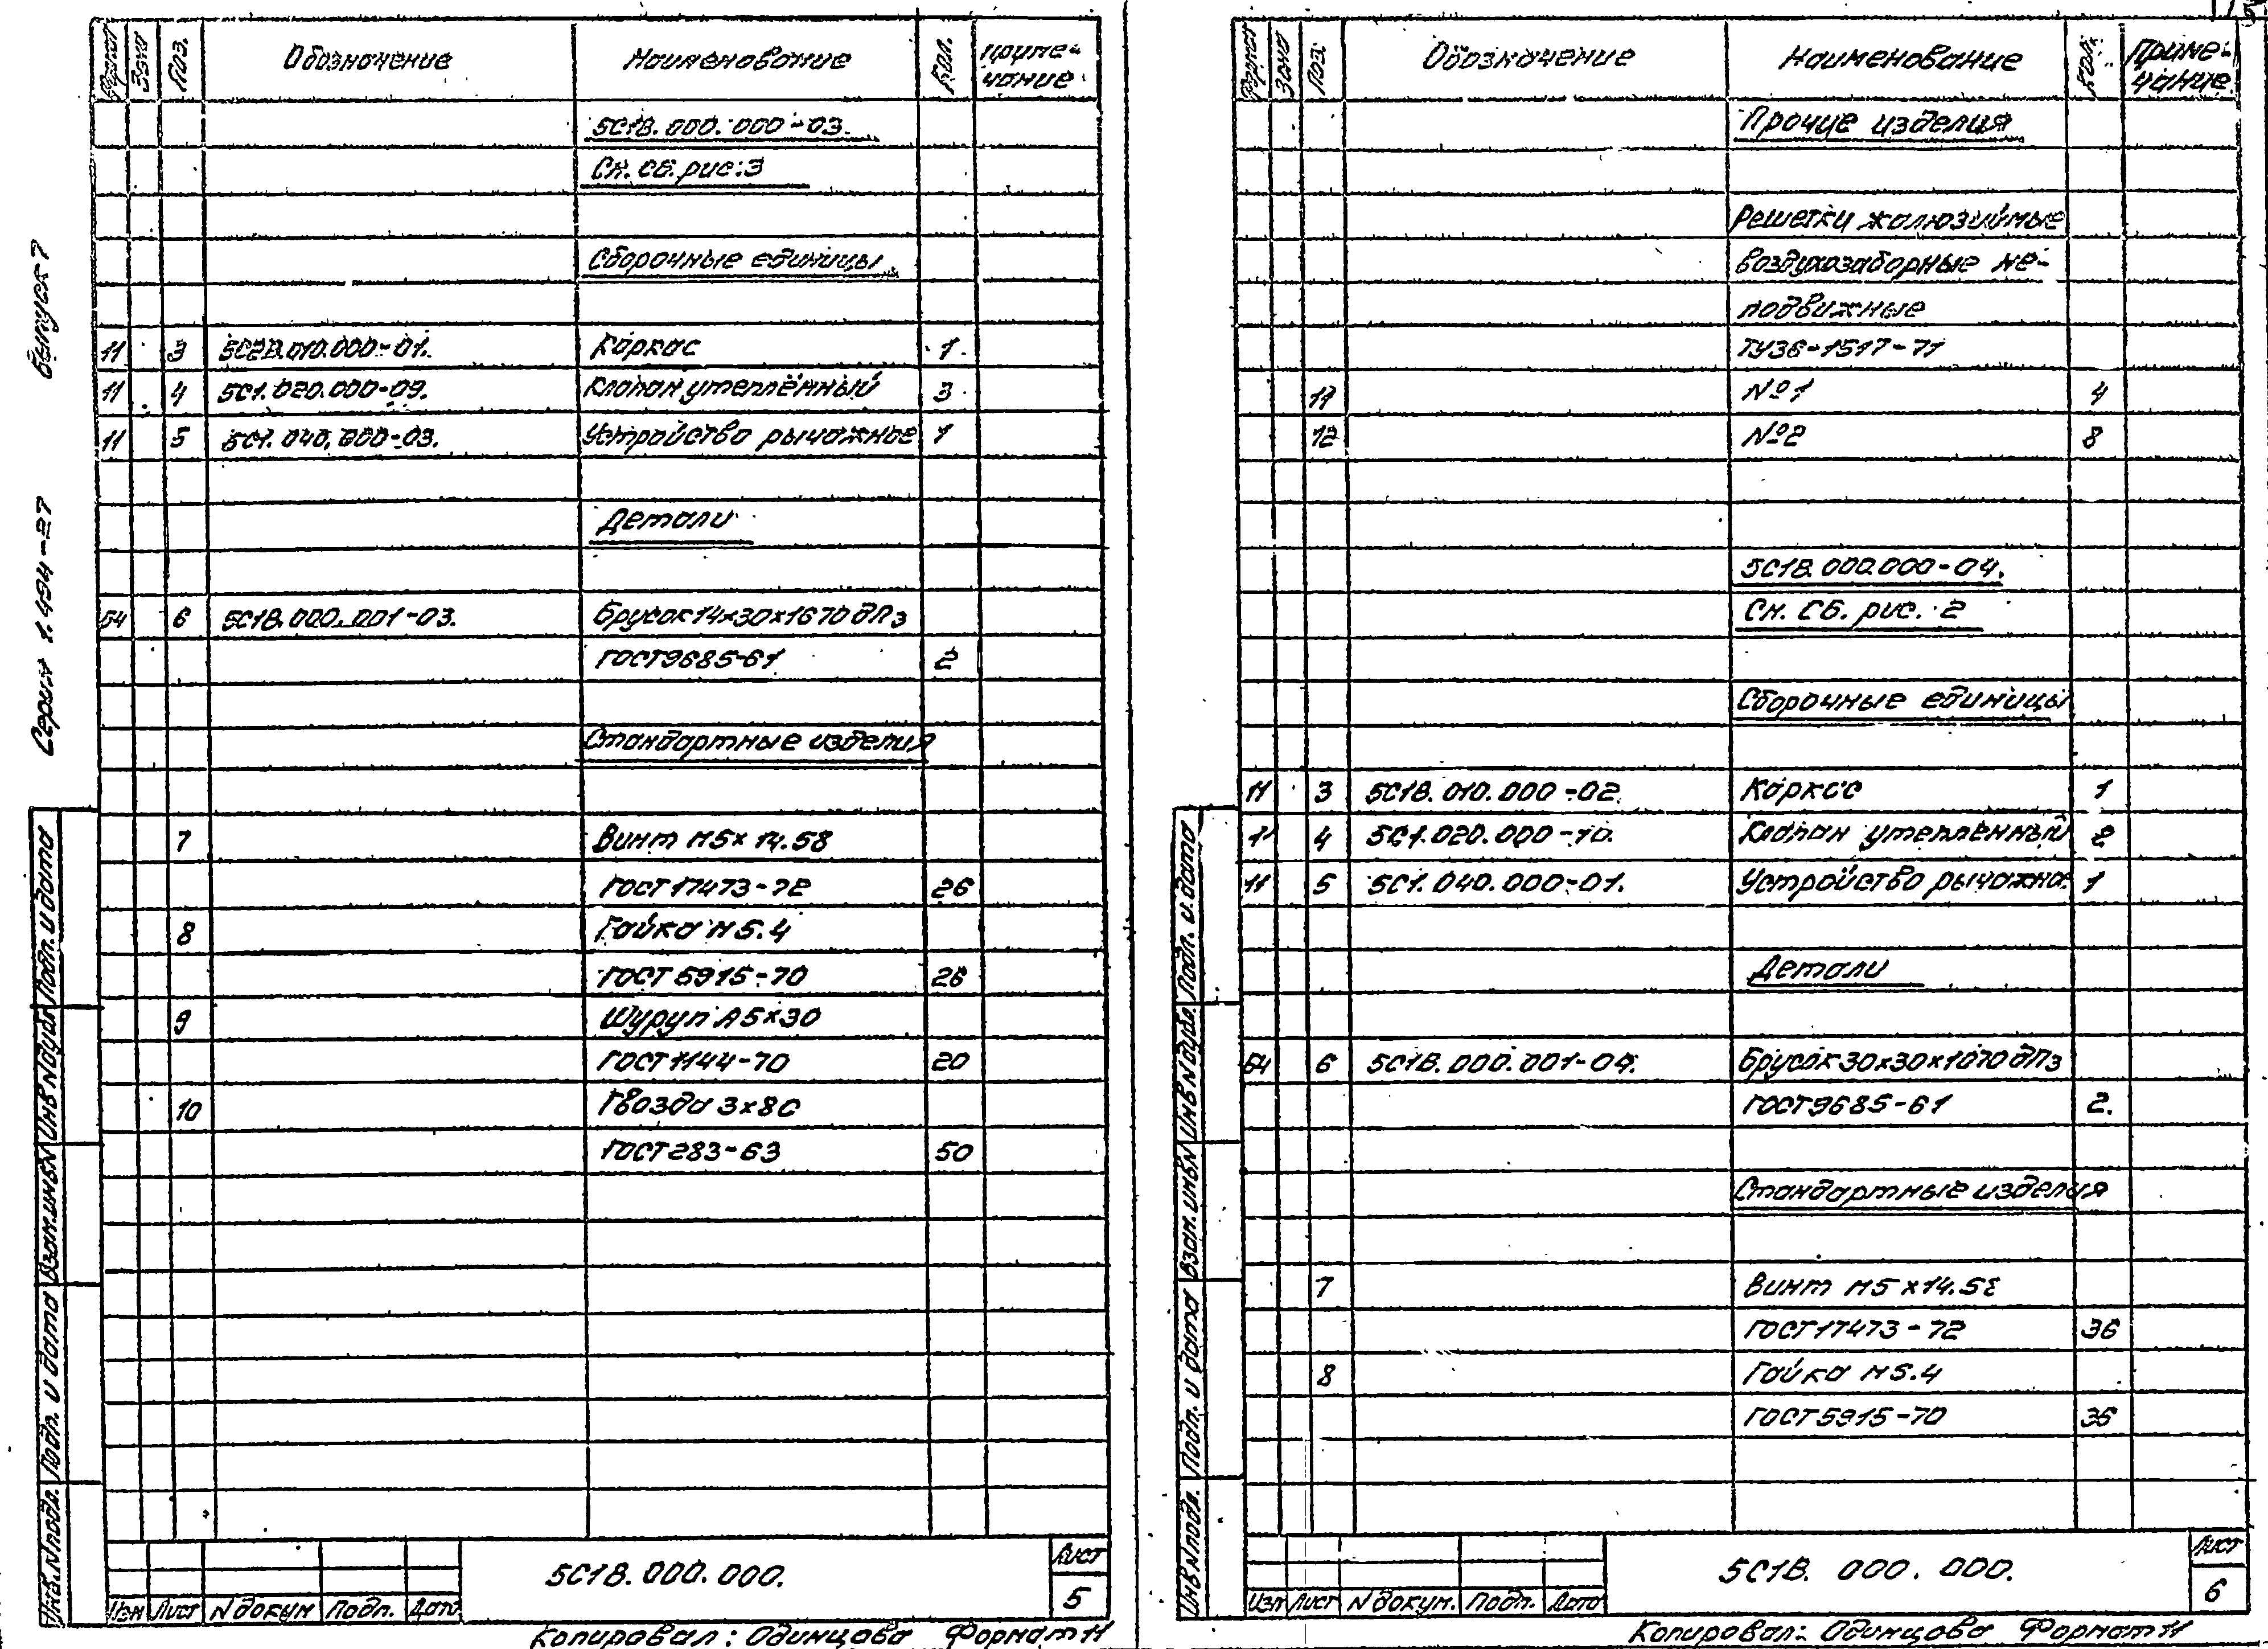 Серия 1.494-27 Выпуск 7
Формат Зона Поз. Обозначение Наименование Кол. Примечание
5С1В.000.000-03.
См. СБ. рис. 3
Сборочные единицы
11 3 5С2В.010.000-01. Каркас 1
11 4 5С1.020.000-09. Клапан утеплённый 3
11 5 5С1.040.000-03. Устройство рычажное 1
Детали
Б4 6 5С1В.000.001-03. Брусок 14х30х1670 ДП3
ГОСТ 9685-61 2
Стандартные изделия
7 Винт М5х14.58
ГОСТ 17473-72 26
8 Гайка М5.4
ГОСТ 5915-70 26
9 Шуруп А5х30
ГОСТ 1144-70 20
10 Гвозди 3х80
ГОСТ 283-63 50
Инв.N подл. Подп. и дата Взам.инв.N Инв.N дубл. Подп. и дата
Изм Лист N докум Подп. Дата
5С1В.000.000.
Лист
5
Копировал: Одинцова Формат 11
Формат Зона Поз. Обозначение Наименование Кол. Примечание
Прочие изделия
Решетки жалюзийные
воздухозаборные не-
подвижные
ТУ36-1517-71
11 №1 4
12 №2 8
5С1В.000.000-04.
См. СБ. рис. 2
Сборочные единицы
11 3 5С1В.010.000-02. Каркас 1
11 4 5С1.020.000-10. Клапан утеплённый 2
11 5 5С1.040.000-01. Устройство рычажно. 1
Детали
Б4 6 5С1В.000.001-04. Брусок 30х30х1070 ДП3
ГОСТ 9685-61 2.
Стандартные изделия
7 Винт М5х14.58
ГОСТ 17473-72 36
8 Гайка М5.4
ГОСТ 5915-70 36
Инв.N подл. Подп. и дата Взам.инв.N Инв.N дубл. Подп. и дата
Изм Лист N докум. Подп. Дата
5С1В.000.000.
Лист
6
Копировал: Одинцова Формат 11